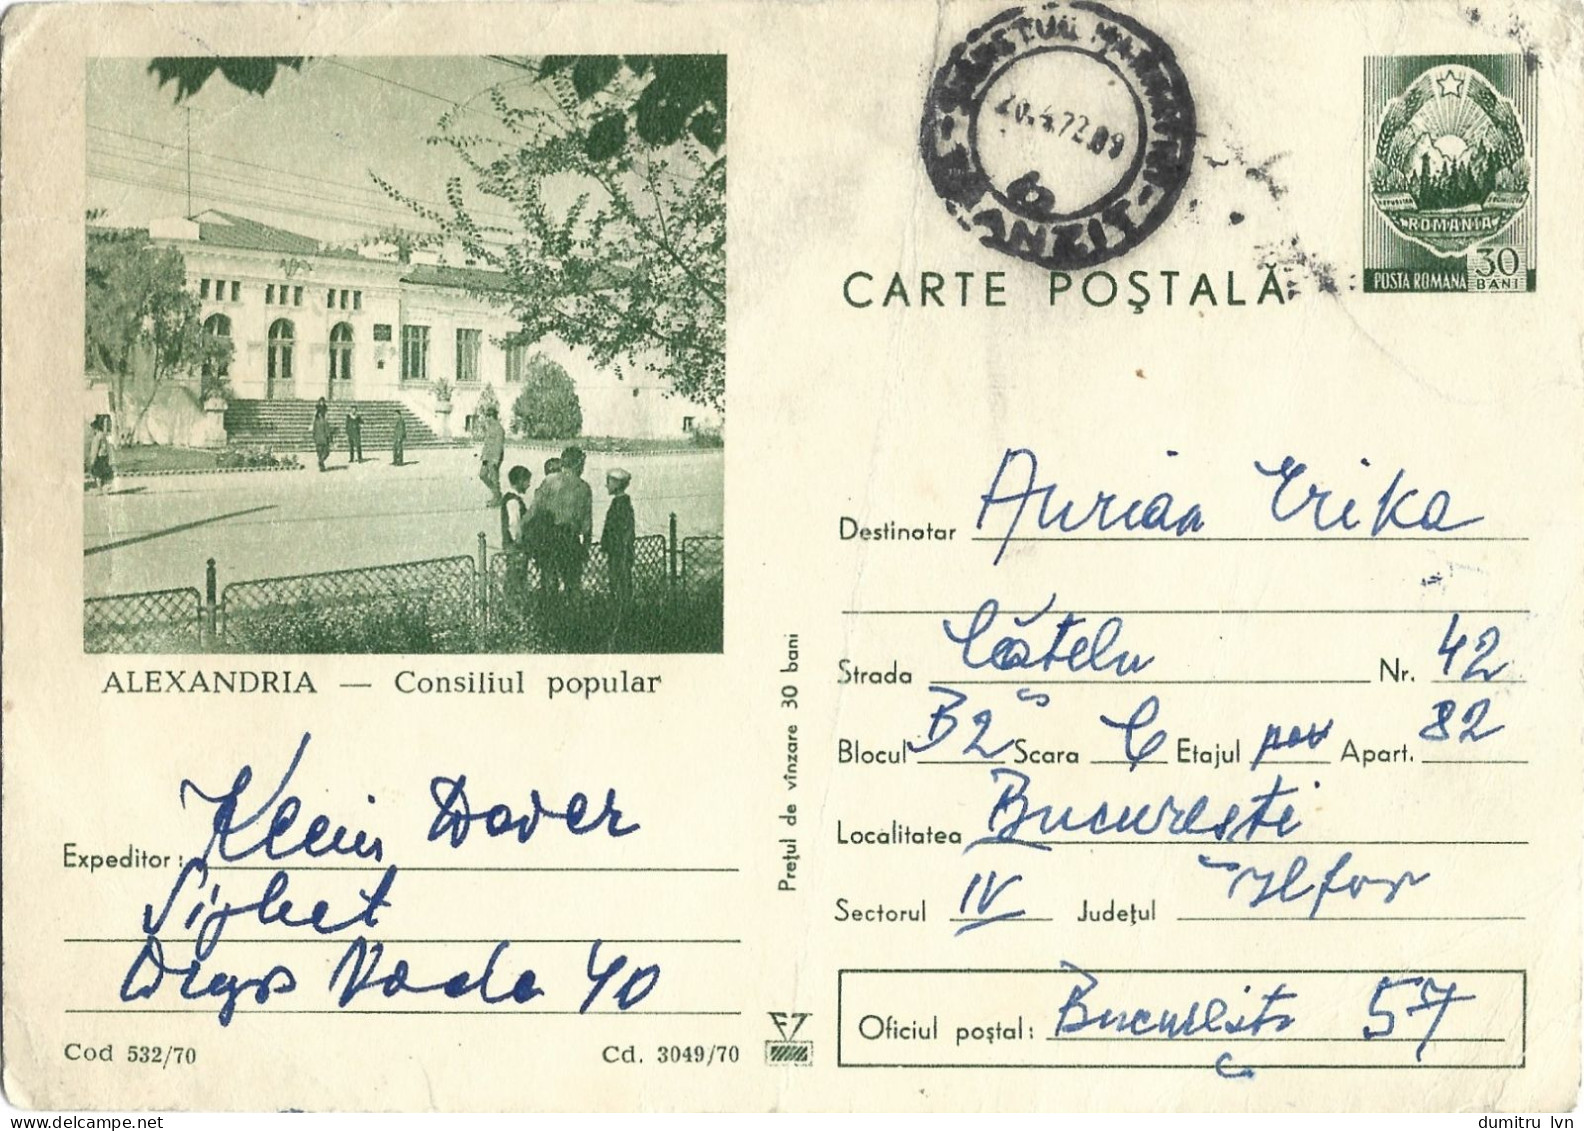 SIGHETUL MARMATIEI
20.4.72.09
TRANZIT
REPUBLICA SOCIALISTA
ROMANIA
POSTA ROMANA 30 BANI
CARTE POŞTALĂ
ALEXANDRIA — Consiliul popular
Destinatar Aurian Erika
Strada Cățelu Nr. 42
Blocul B2 Scara C Etajul Apart. 82
Localitatea București
Sectorul IV Judeţul Ilfov
Oficiul poştal: București 57
Preţul de vînzare 30 bani
Expeditor: Klein
Sighet
Dragoș Voda 40
Cod 532/70
Cd. 3049/70
dumitru lvn